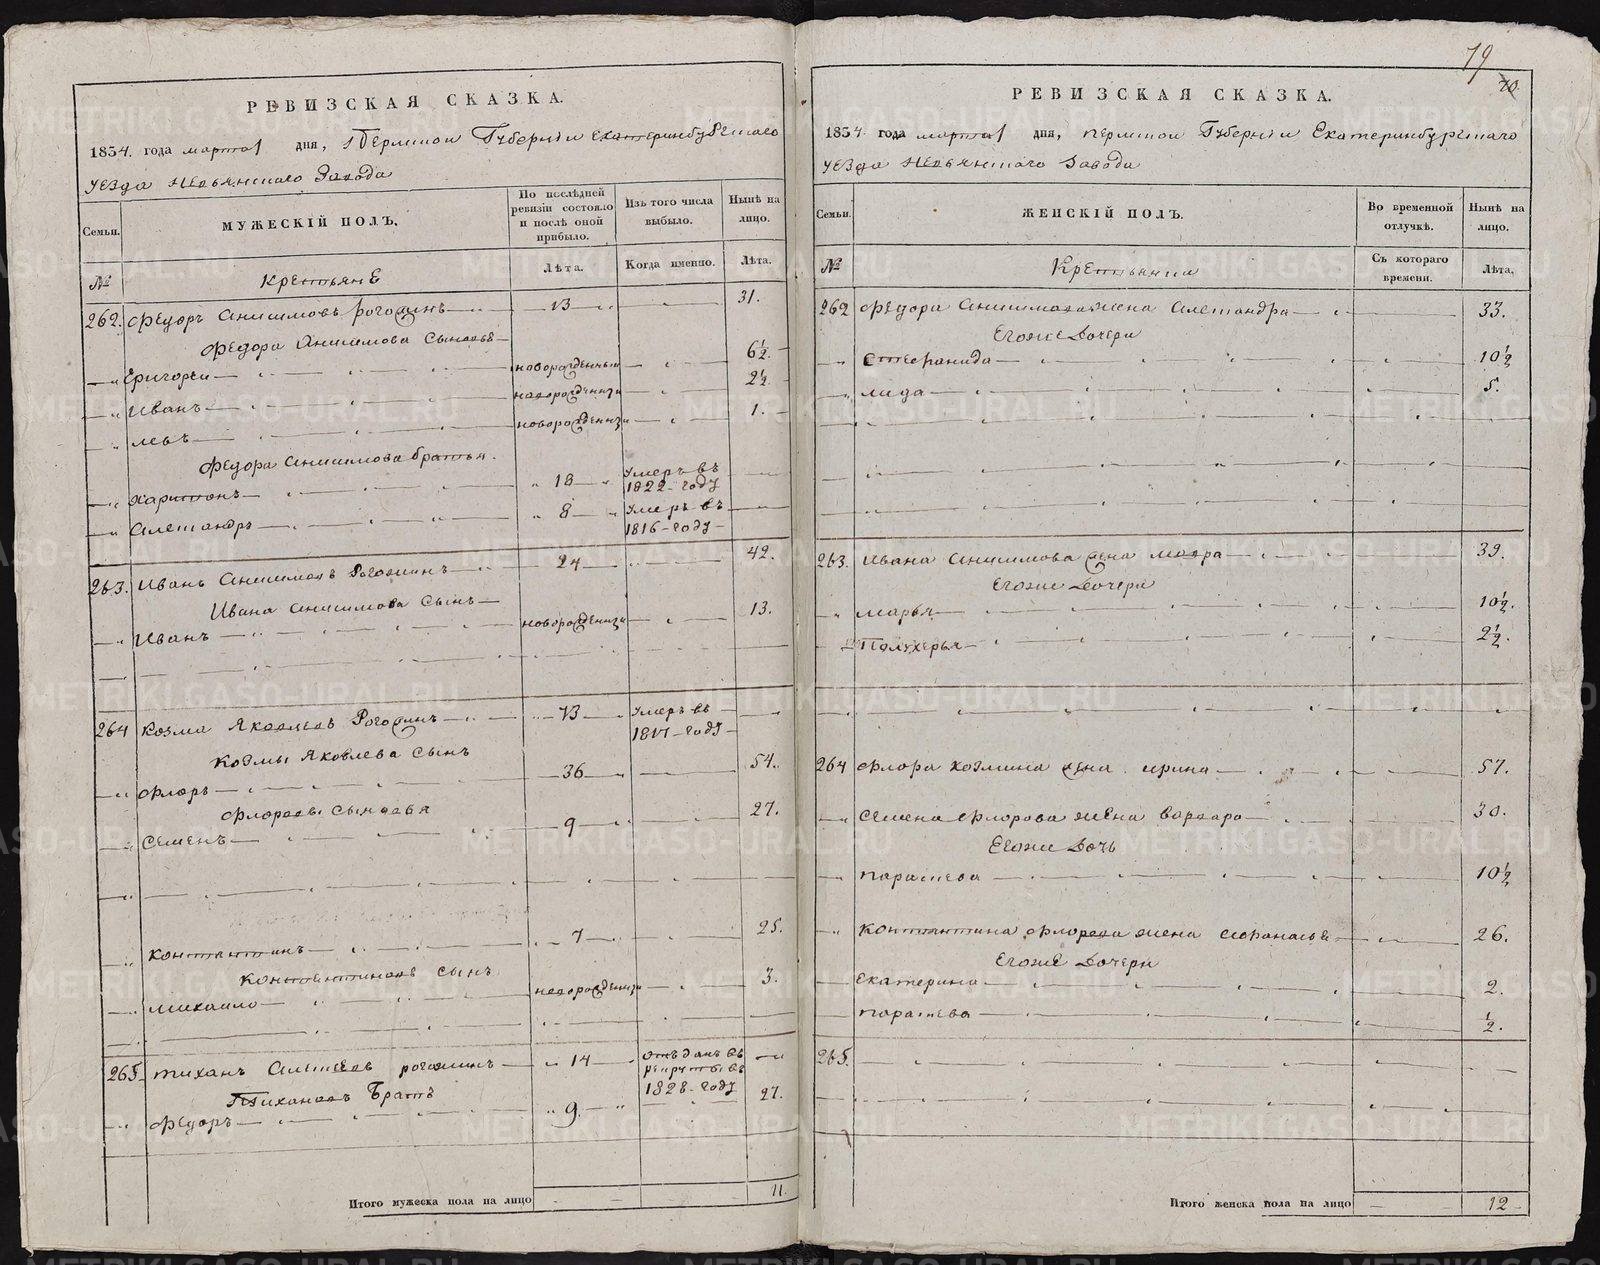 РЕВИЗСКАЯ СКАЗКА.
1834. года марта 1 дня, Пермской Губернии Екатеринбургскаго
уезда Невьянскаго Завода
Семьи. МУЖЕСКІЙ ПОЛЪ. По послѣдней ревизіи состояло и послѣ оной прибыло. Изъ того числа выбыло. Нынѣ на лицо.
№ Крестьяне Лѣта. Когда именно. Лѣта.
262. Федоръ Анисимовъ рогожинъ 13 31.
Федора Анисимова сыновья
Григореи новорожденныи 6½
Иванъ новорожденныи 2½
левъ новорожденныи 1.
Федора Анисимова братья.
харитонъ 18 умеръ въ 1822 году
Александръ 8 умеръ въ 1816 году
263. Иванъ Анисимовъ Рогожинъ 24 42.
Ивана Анисимова Сынъ
Иванъ новорожденныи 13.
264 Козма Яковлевъ Рогожинъ 73 умеръ въ 1817 году
Козмы Яковлева сынъ
Флоръ 36 54.
Флоровы сыновья
Семенъ 9 27.
Константинъ 7 25.
Константиновъ сынъ
михаило новорожденныи 3.
265. тиханъ Алексеевъ рогожинъ 14 отъданъ въ рекруты въ 1828 году
Тихановъ Братъ
Федоръ 9. 27.
Итого мужеска пола на лицо 11.
79
70
РЕВИЗСКАЯ СКАЗКА.
1834. года марта 1 дня, пермской Губернии Екатеринбургскаго
уезда Невьянскаго Завода
Семьи. ЖЕНСКІЙ ПОЛЪ. Во временной отлучкѣ. Нынѣ на лицо.
№ Крестьянки Съ котораго времени. Лѣта.
262 Федора Анисимова жена Александра 33.
Егоже Дочери
Степанида 10½
лида 5.
263. Ивана Анисимова жена мавра 39.
Егоже Дочери
марья 10½.
Полухерья 2½
264 Флора козмина жена ирина 57.
Семена Флорова жена варвара 30.
Егоже Дочь
парасkева 10½
Константина Флорова жена 26.
Егоже Дочери
Екатерина 2.
параскева ½.
265.
Итого женска пола на лицо 12
METRIKI.GASO-URAL.RU